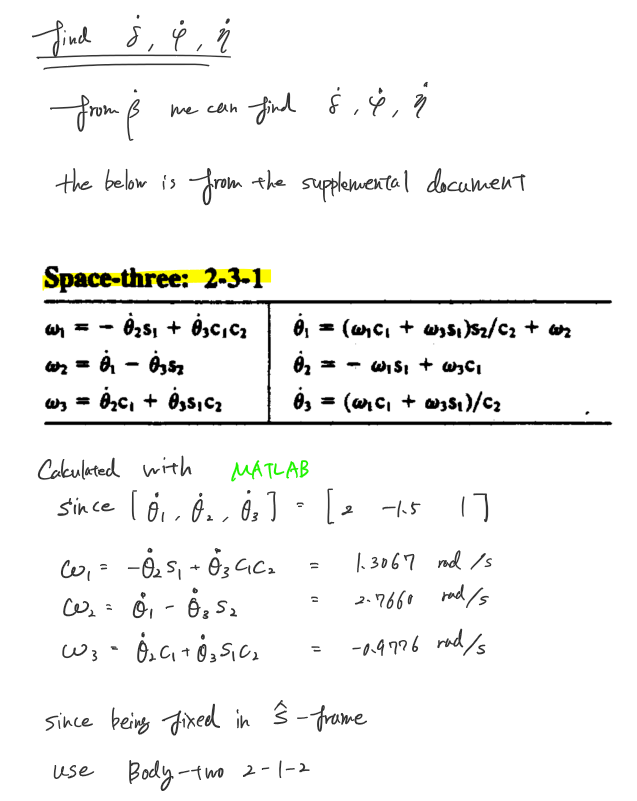 find δ̇, φ̇, η̇
from β̇ we can find δ̇, φ̇, η̇
the below is from the supplemental document
Space-three: 2-3-1
ω₁ = − θ̇₂s₁ + θ̇₃c₁c₂
θ̇₁ = (ω₁c₁ + ω₃s₁)s₂/c₂ + ω₂
ω₂ = θ̇₁ − θ̇₃s₂
θ̇₂ = − ω₁s₁ + ω₃c₁
ω₃ = θ̇₂c₁ + θ̇₃s₁c₂
θ̇₃ = (ω₁c₁ + ω₃s₁)/c₂
Calculated with MATLAB
since [θ̇₁, θ̇₂, θ̇₃] = [2 -1.5 1]
ω₁ = -θ̇₂s₁ + θ̇₃c₁c₂ = 1.3067 rad/s
ω₂ = θ̇₁ - θ̇₃s₂ = 2.7660 rad/s
ω₃ = θ̇₂c₁ + θ̇₃s₁c₂ = -0.9776 rad/s
since being fixed in ŝ-frame
use Body-two 2-1-2